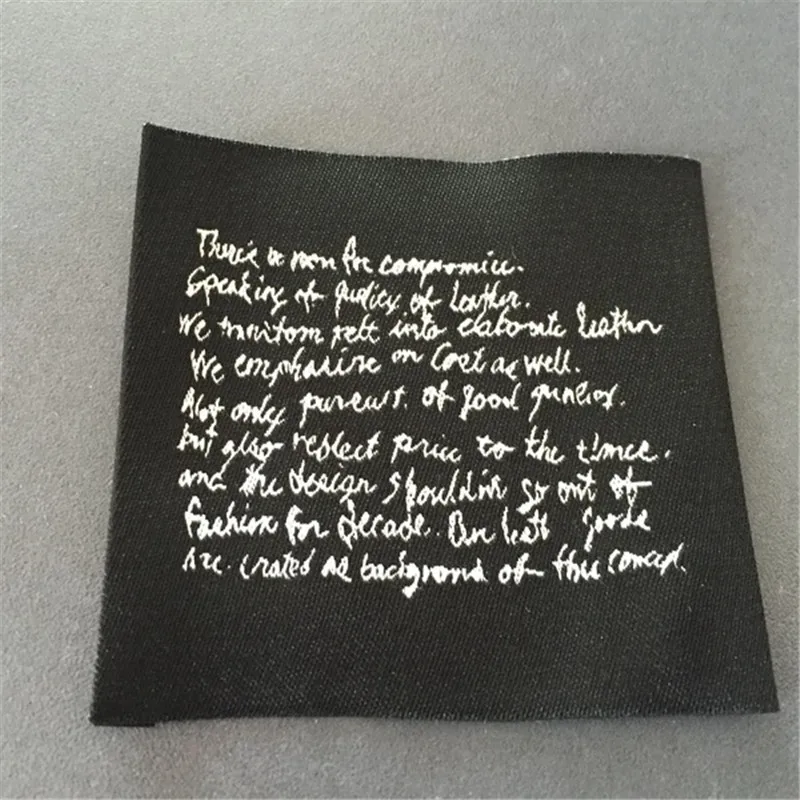 There's no room for compromise.
Speaking of quality of leather.
We transform pelt into elaborate leather
We emphasize on Cost as well.
Not only pursuit. of good quality.
but also reflect price to the times.
and the design shouldn't go out of
fashion for decade. Our leath goods
are. created as background of this concept.